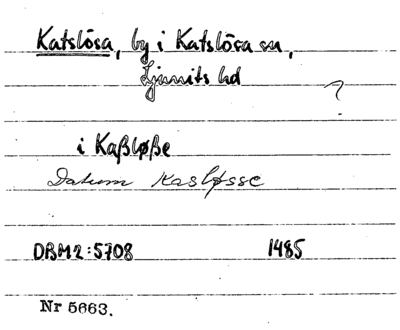 Katslösa, by i Katslösa sn,
Ljunits hd
?
i Kaßløße
Datum Kasløsse
DBM2:5708 1485
Nr 5663.